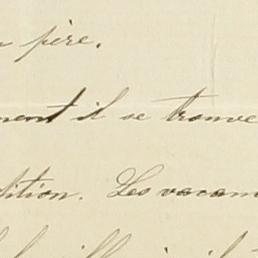 père.
ment il se trouve
sition. Les vacan